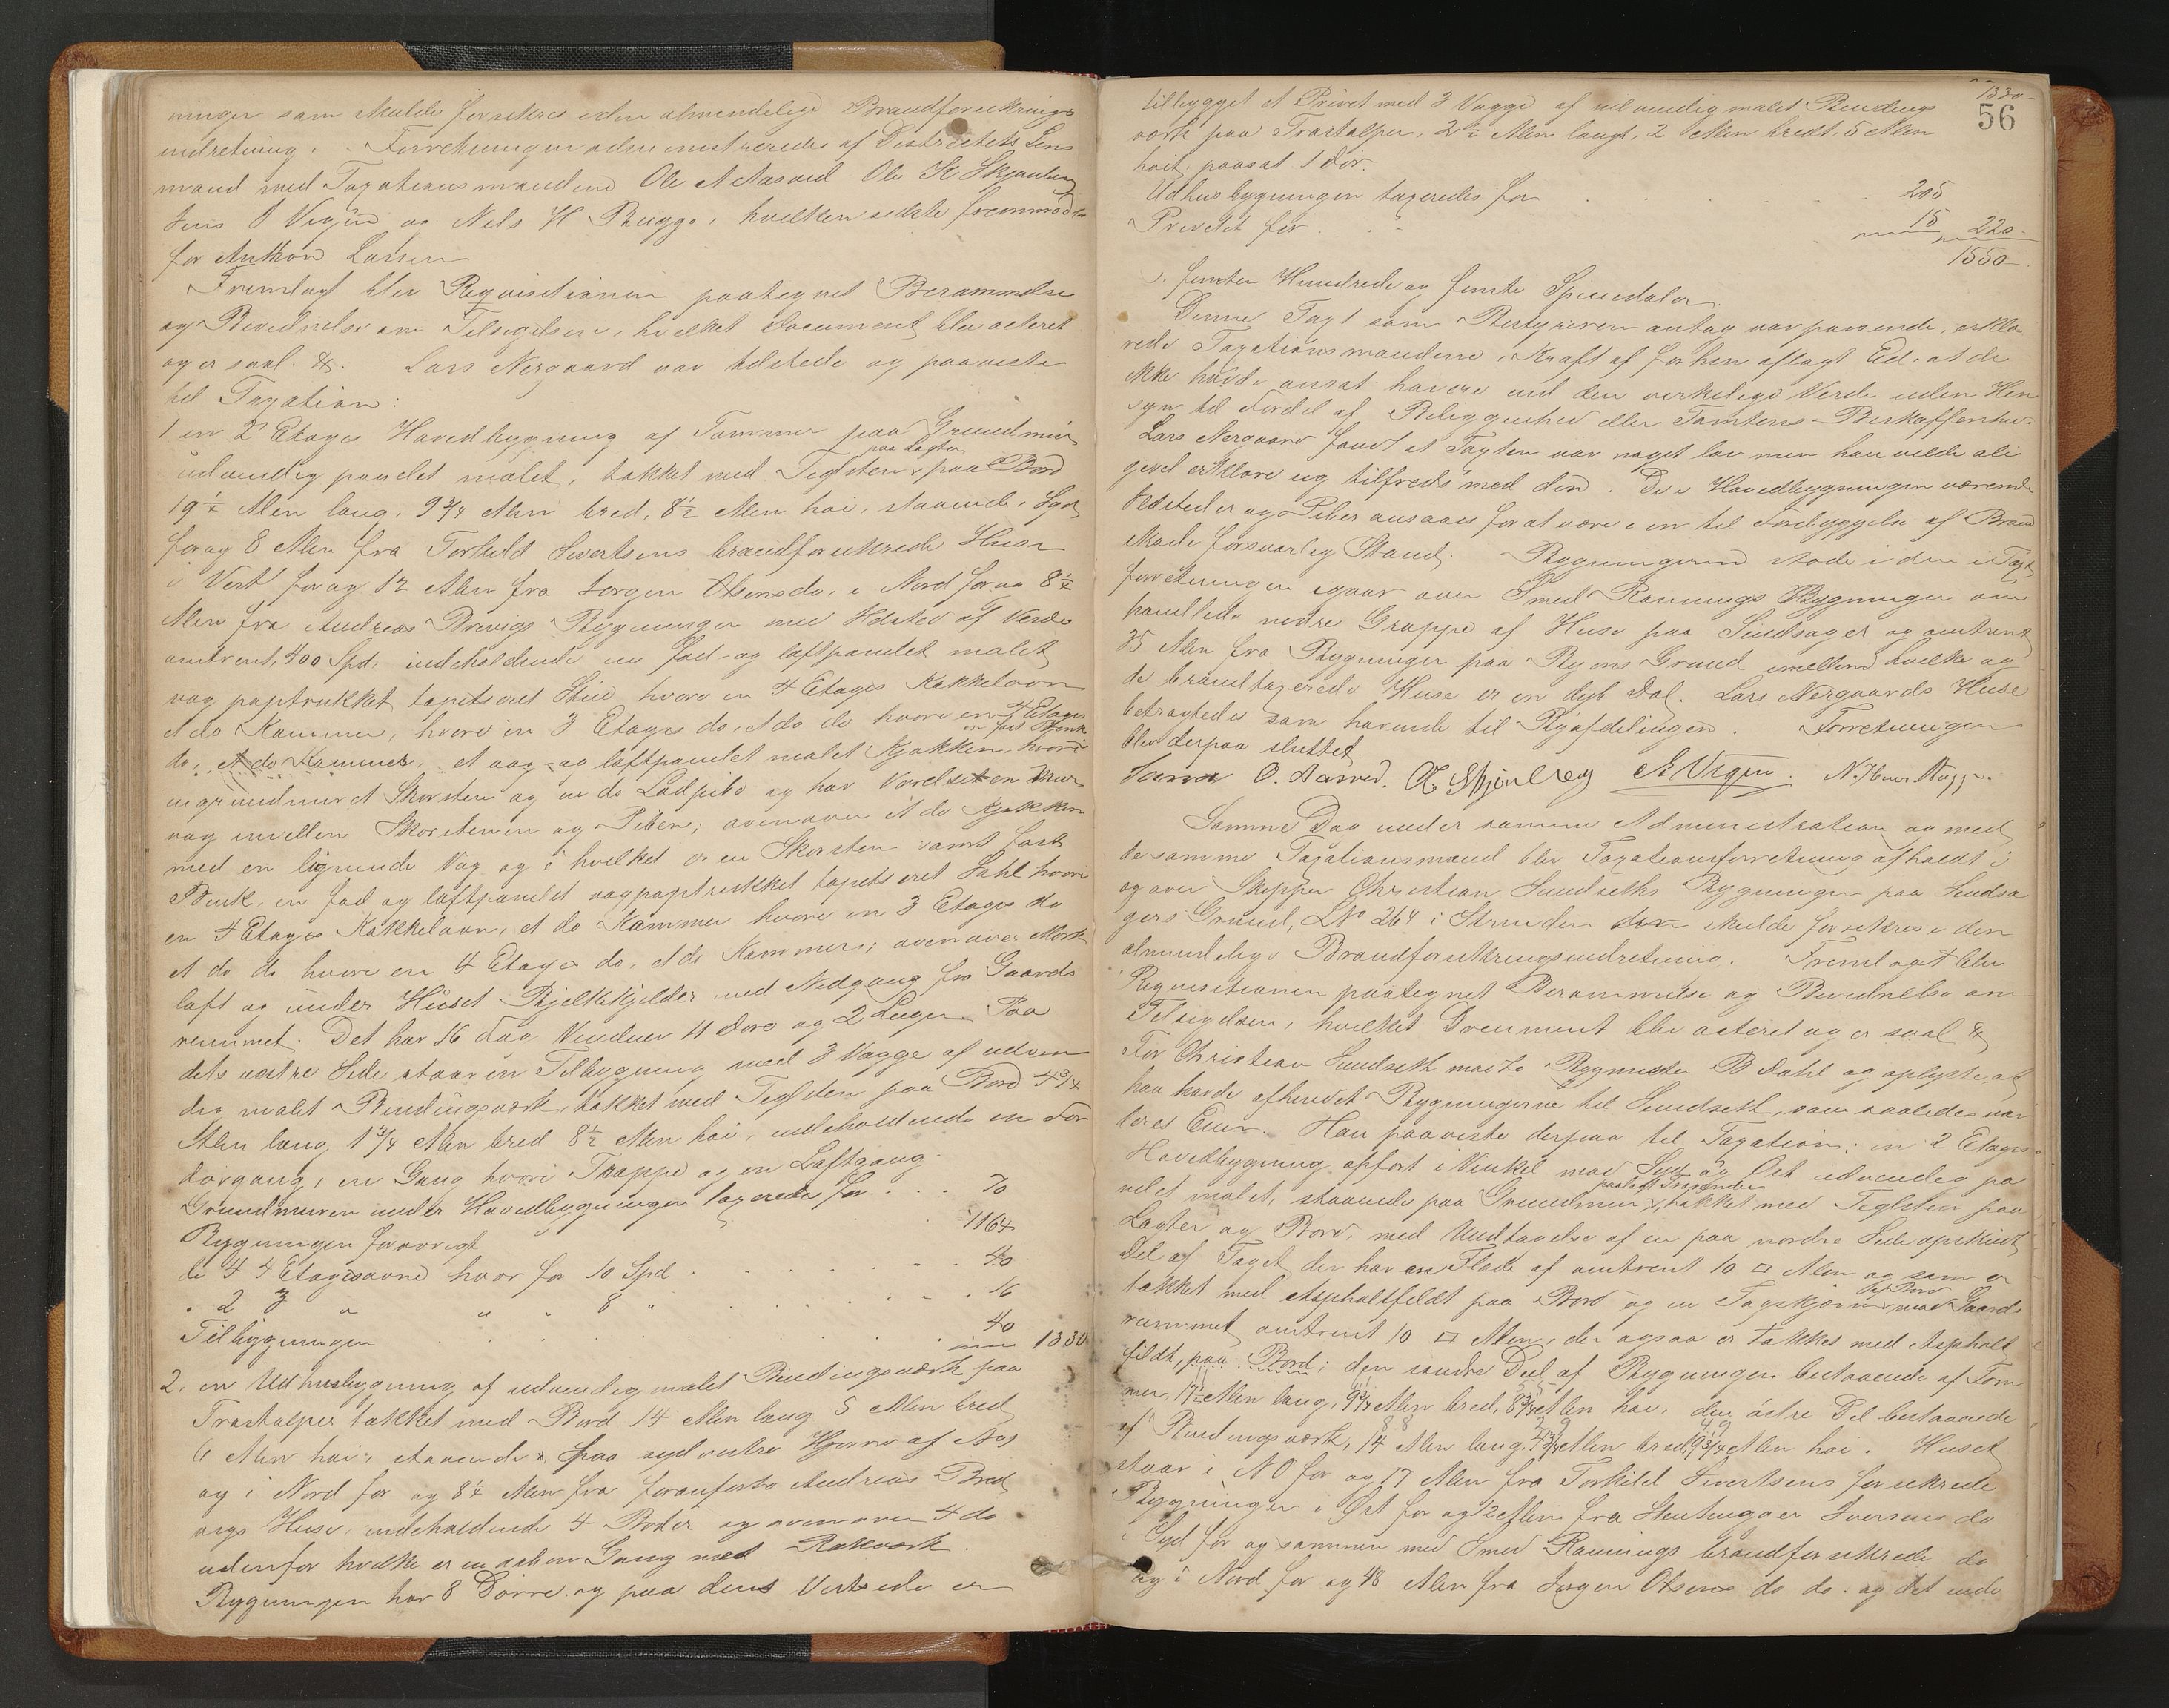 ninger som skulde forsikres i den almindelige Brandforsikrings
indretning. Forretningen administreredes af Distriktets Lens
mand med Taxationsmændene Ole A Aasved Ole K Skjønberg
Jens O Vigen og Nels H Rugge, hvilken sidste fremmødte
for Anthon Larsen
Fremlagt blev Reqvisitionen paategnet Berammelse
og Bevidnelse om Tilsigelsen, hvilket Document blev acteret
og er saal. &. Lars Nergaard var tilstede og paaviste
til Taxation:
1 en 2 Etages Hovedbygning af Tømmer paa Grundmur
paa Lægter
udvendig panelet malet, takket med Teglsten x paa Bord
19 1/2 Alen lang, 9 3/4 Alen bred, 8 1/2 Alen høi, staaende i Syd
for og 8 Alen fra Torkild Sivertsens brandforsikrede Huse
i Vest for og 12 Alen fra Jørgen Olsens do, i Nord for og 8 1/2
Alen fra Andreas Brevigs Bygninger med Ildsted af Verdi
omtrent 400 Spd. indeholdende en fod- og loftpanelet malet
vægpaptrukket tapetseret Stue hvori en 4 Etages Kakkelovn
et do Kammer, hvori en 3 Etages do, et do do hvori en 4 Etages
en fast Bænk
do, et do Kammer, et væg- og loftpanelet malet Kjøkken, hvori
en grundmuret Skorsten og en do Lødpibe og har Værelset en Mur
væg imellem Skorstenen og Piben; ovenover et do Kjøkken
med en lignende Væg og i hvilket er en Skorsten samt fast
Bænk, en fod og loftpanelet vægpaptrukket tapetseret Sahl hvori
en 4 Etages Kakkelovn, et do Kammer hvori en 3 Etages do
et do do hvori en 4 Etages do, et do Kammers; ovenover Mørk
loft og under Huset Bjelkekjelder med Nedgang fra Gaards
rummet. Det har 16 Fag Vinduer 11 Døre og 2 Luger. Paa
dets vestre Side staar en Tilbygning med 3 Vægge af udven
dig malet Bindingsværk, takket med Teglsten paa Bord 4 3/4
Alen lang 1 3/4 Alen bred 8 1/2 Alen høi, indeholdende en For
dørgang, en Gang hvori Trappe og en Loftgang
Grundmuren under Hovedbygningen taxeredes for . . . 70
Bygningen forøvrigt . . . 1164
de 4 4 Etagesovne hvor for 10 Spd . . . 40
" 2 3 " " " 8 " . . . 16
Tilbygningen . . . 40 1330
2, en Udhusbygning af udvendig malet Bindingsværk paa
Træstolper takket med Bord 14 Alen lang 5 Alen bred
6 Alen høi, staaende x paa sydvestre Hjørne af No 1
og i Nord for og 8 1/2 Alen fra foranførte Andreas Bred
vigs Huse, indeholdende 4 Boder og ovenover 4 do
udenfor hvilke er en aaben Gang med Rækværk.
Bygningen har 8 Dørre og paa dens Vestside er
1330
56
tilbygget et Privet med 3 Vægge af udvendig malet Bindings
værk paa Træstolper, 2 1/2 Alen langt, 2 Alen bredt, 5 Alen
høit, paasat 1 Dør.
Udhusbygningen taxeredes for . . . 205
Privetet for . . . 15 220
1550
s. femten Hundrede og femti Speciedaler.
Denne Taxt som Bestyreren antog var passende, erklæ
rede Taxationsmændene i Kraft af forhen aflagt Ed, at de
ikke havde ansat høiere end den virkelige Verdi uden Hen
syn til Fordel af Beliggenhed eller Tomtens Beskaffenhed.
Lars Nergaard fandt at Taxten var noget lav men han vilde ali
gevel erklære sig tilfreds med den. De i Hovedbygningen værende
Ildsteder og Piber ansaaes for at være i en til Forebyggelse af Brand
skade forsvarlig Stand. Bygningerne stode i den i Taxt
forretningen igaar over Smed Rannings Bygninger om
handlede nedre Gruppe af Huse paa Sundsager og omtrent
35 Alen fra Bygninger paa Byens Grund imellem hvilke og
de brandtaxerede Huse er en dyb Dal. Lars Nergaards Huse
betragtedes som hørende til Byafdelingen. Forretningen
blev derpaa sluttet.
O. Aasved. O K Skjønberg J. O Vigen. N. Rugge.
Samme Dag under samme Administration og med
de samme Taxationsmænd blev Taxationsforretning afholdt i
og over Skipper Christian Sundseths Bygninger paa Sundsa
gers Grund, LNo 264 i Stranden der skulde forsikres i den
almindelige Brandforsikringsindretning. Fremlagt blev
Reqvisitionen paategnet Berammelse og Bevidnelse om
Tilsigelsen, hvilket Document blev acteret og er saal. &
For Christian Sundseth mødte Bygmester B Dahl og oplyste, at
han havde afhendet Bygningerne til Sundseth, som saaledes var
deres Eier. Han paaviste derpaa til Taxation: en 2 Etages
Hovedbygning opført i Vinkel mod Syd og Øst udvendig pa
nelet malet, staaende paa Grundmur x, takket med Teglsten paa
Lægter og Bord, med Undtagelse af en paa nordre Side opskudt
Del af Taget der har en Flade af omtrent 10 □ Alen og som er
af Bord
takket med Asphaltfildt paa Bord og en Tagskjerm x mod Gaards
rummet omtrent 10 □ Alen, der ogsaa er takket med Asphalt
fildt, paa Bord; den søndre Deel af Bygningen bestaaende af Tøm
mer, 17 1/2 Alen lang, 9 3/4 Alen bred, 8 3/4 Alen høi, den østre Del bestaaende
af Bindingsværk, 14 Alen lang, 7 3/4 Alen bred, 9 3/4 Alen høi. Huset
staar i NO for og 17 Alen fra Torkild Sivertsens forsikrede
Bygninger i Øst for og 12 Alen fra Stenhugger Iversens do
i Syd for og sammen med Smed Rannings brandforsikrede do
og i Nord for og 48 Alen fra Jørgen Olsens do do. og det inde